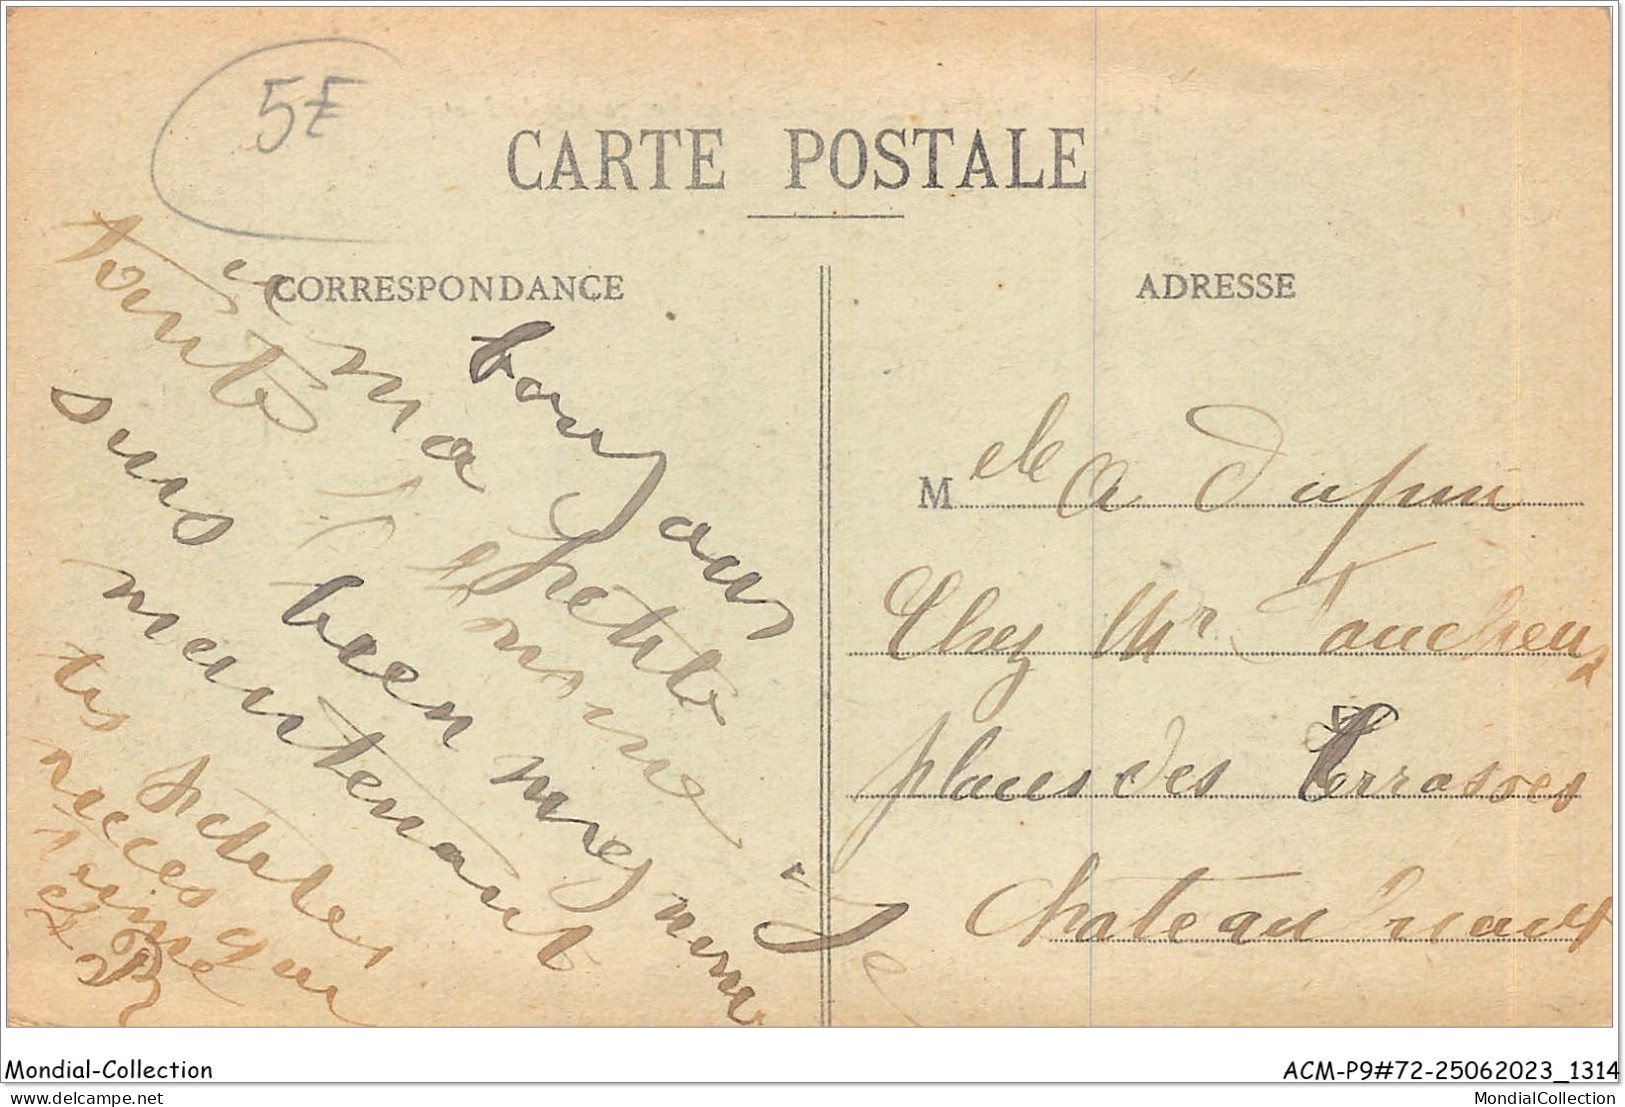 5F
CARTE POSTALE
CORRESPONDANCE
ADRESSE
bonjour
a ma petite
toute
Je
suis bien mignonne
maintenant
tes petites
nièces qui
t'aime
et
Melle A Dupin
Chez Mr Faucheux
places des Terrasses
Chateau'nauf
Mondial-Collection
ACM-P9#72-25062023_1314
delcampe.net
MondialCollection